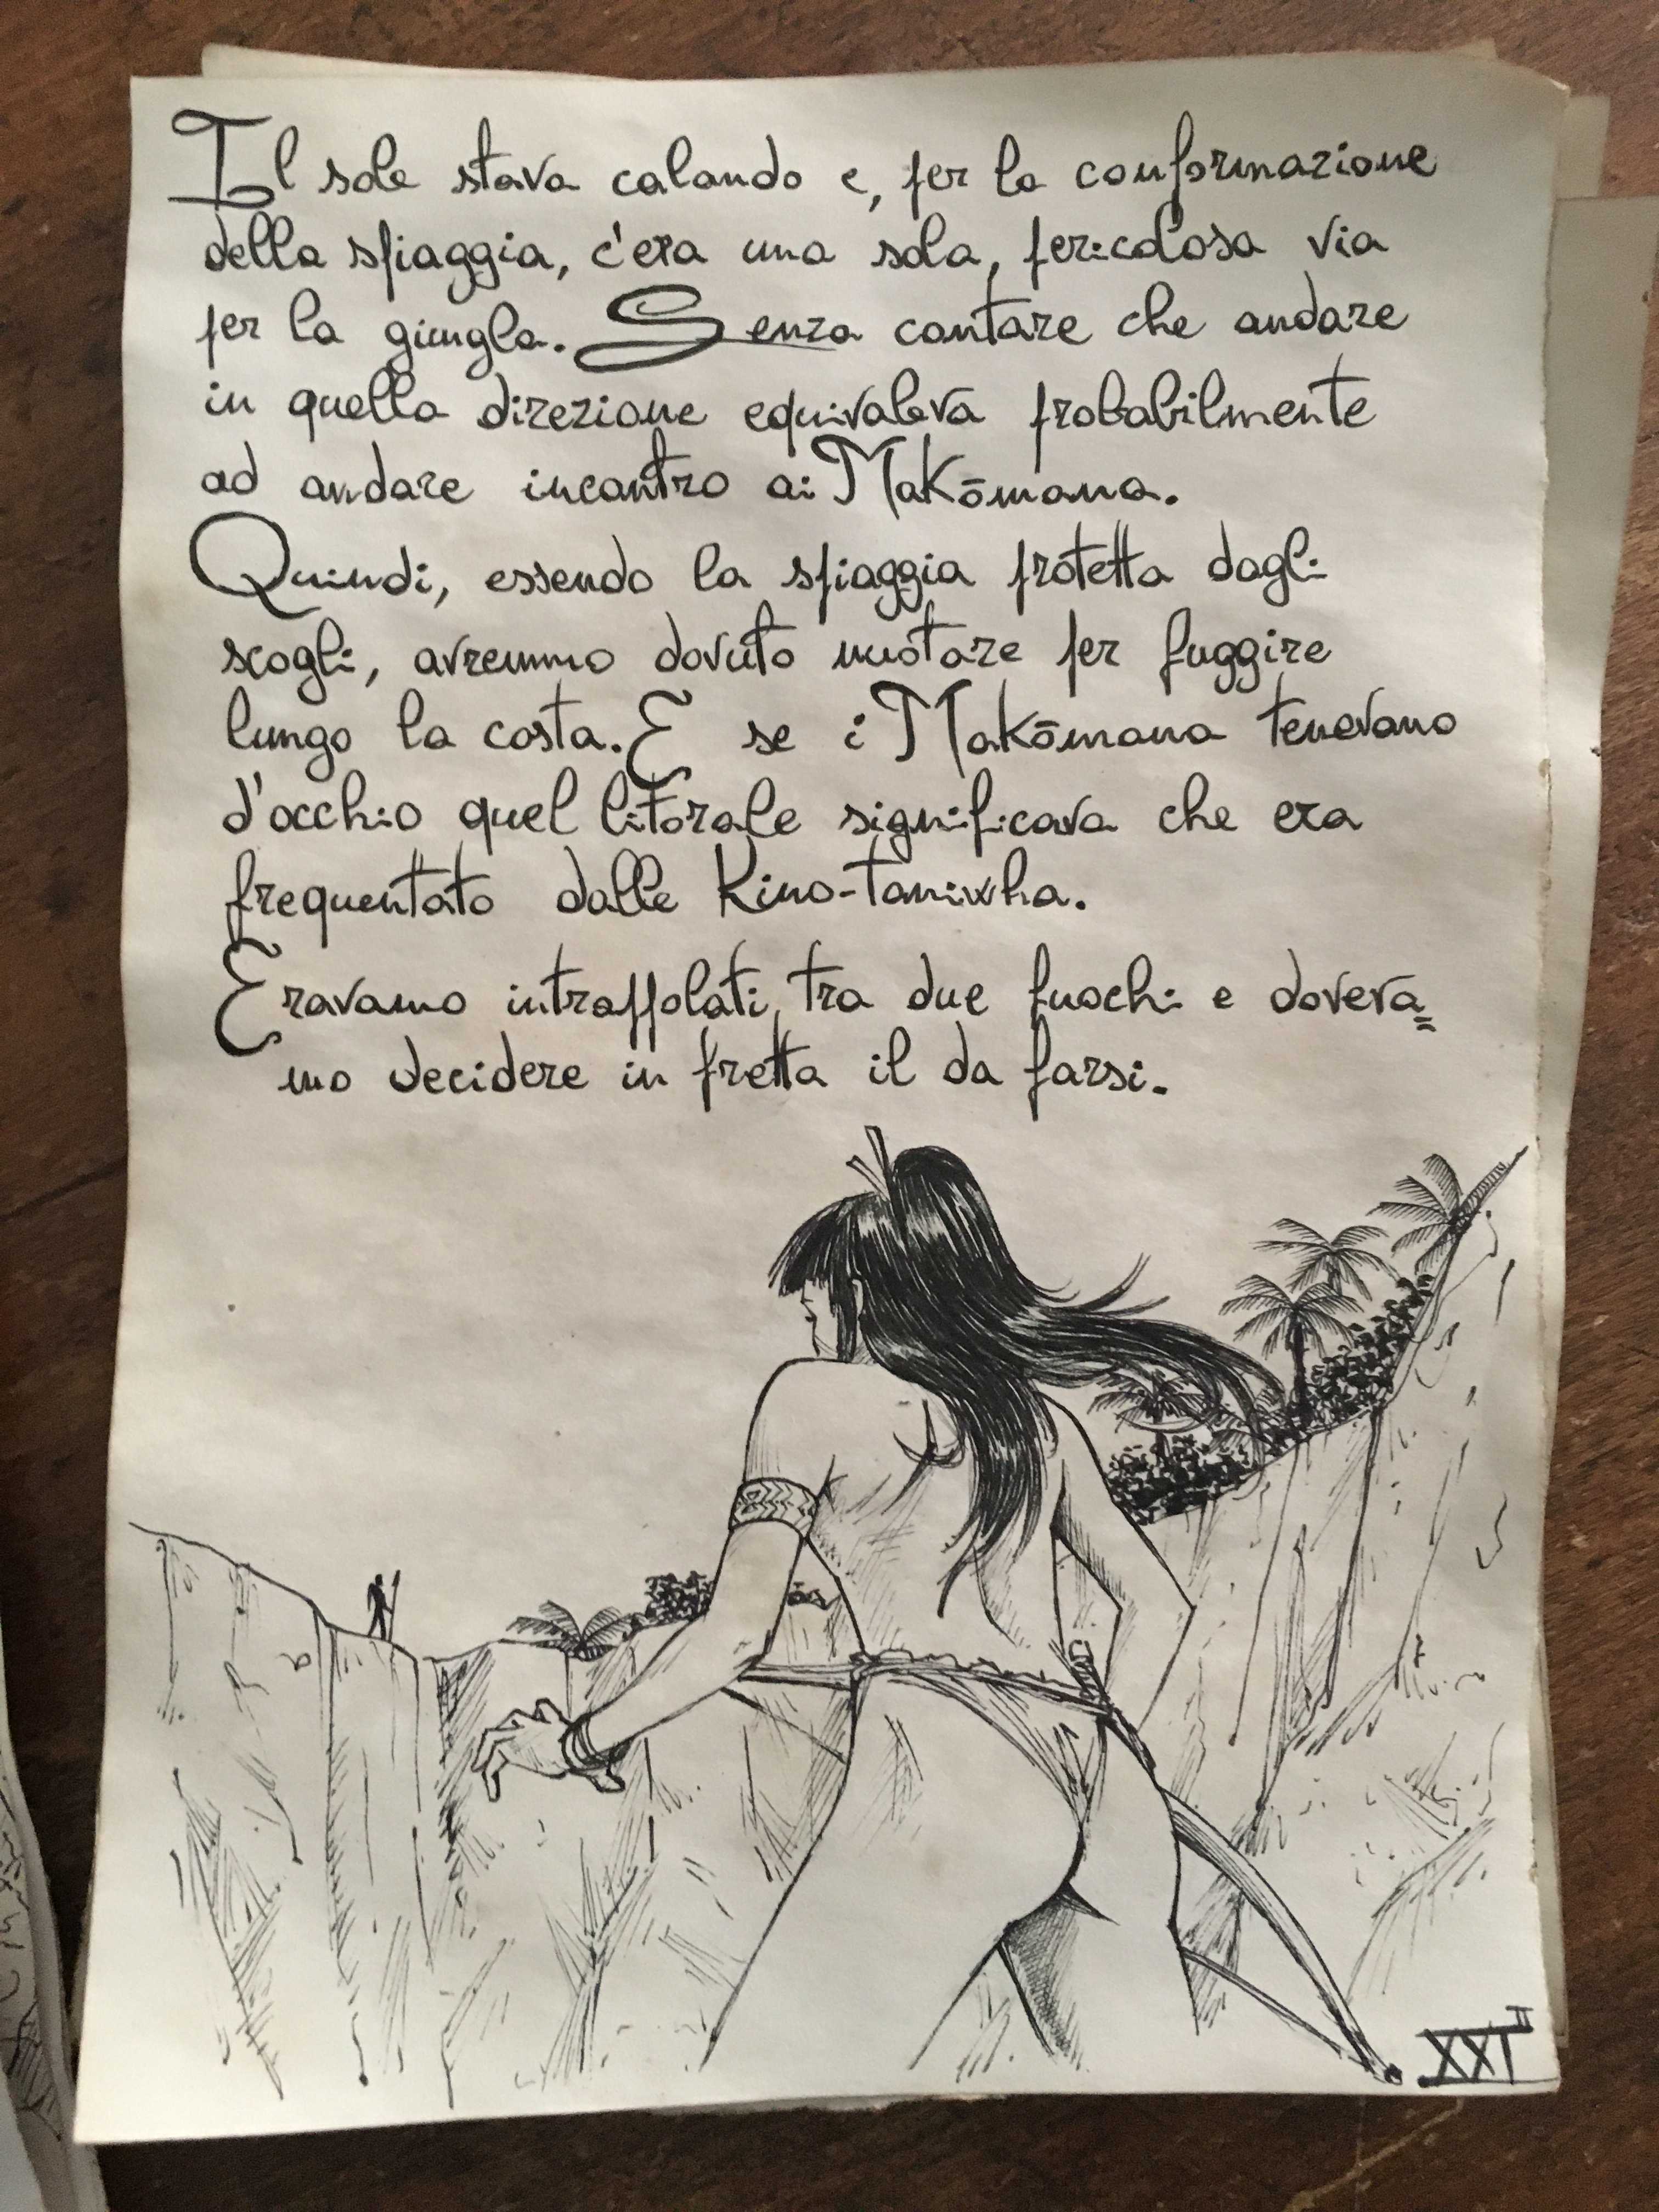 Il sole stava calando e, per la conformazione
della spiaggia, c'era una sola, pericolosa via
per la giungla. Senza contare che andare
in quella direzione equivaleva probabilmente
ad andare incontro ai Makōmana.
Quindi, essendo la spiaggia protetta dagli
scogli, avremmo dovuto nuotare per fuggire
lungo la costa. E se i Makōmana tenevano
d'occhio quel litorale significava che era
frequentato dalle Kino-taniwha.
Eravamo intrappolati tra due fuochi e doveva=
mo decidere in fretta il da farsi.
XXI II